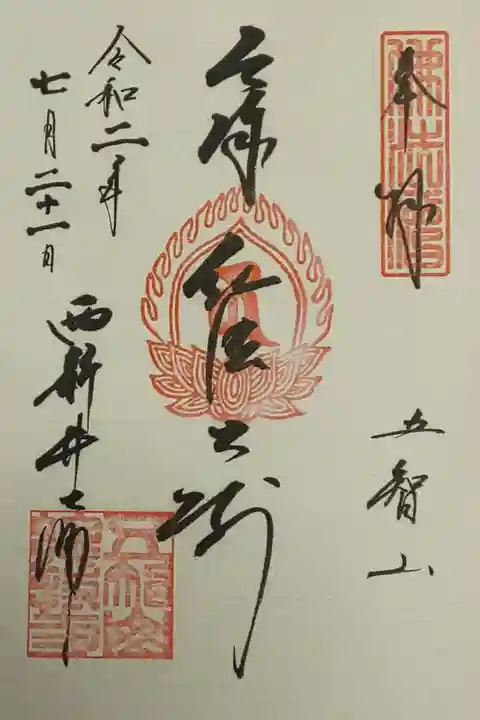 奉拝
五智山
厄除 弘法大師
令和二年
七月二十一日
西新井大師